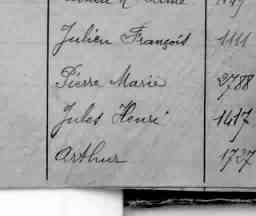 Julien François 1111
Pierre Marie 2788
Jules Henri 1417
Arthur 1727